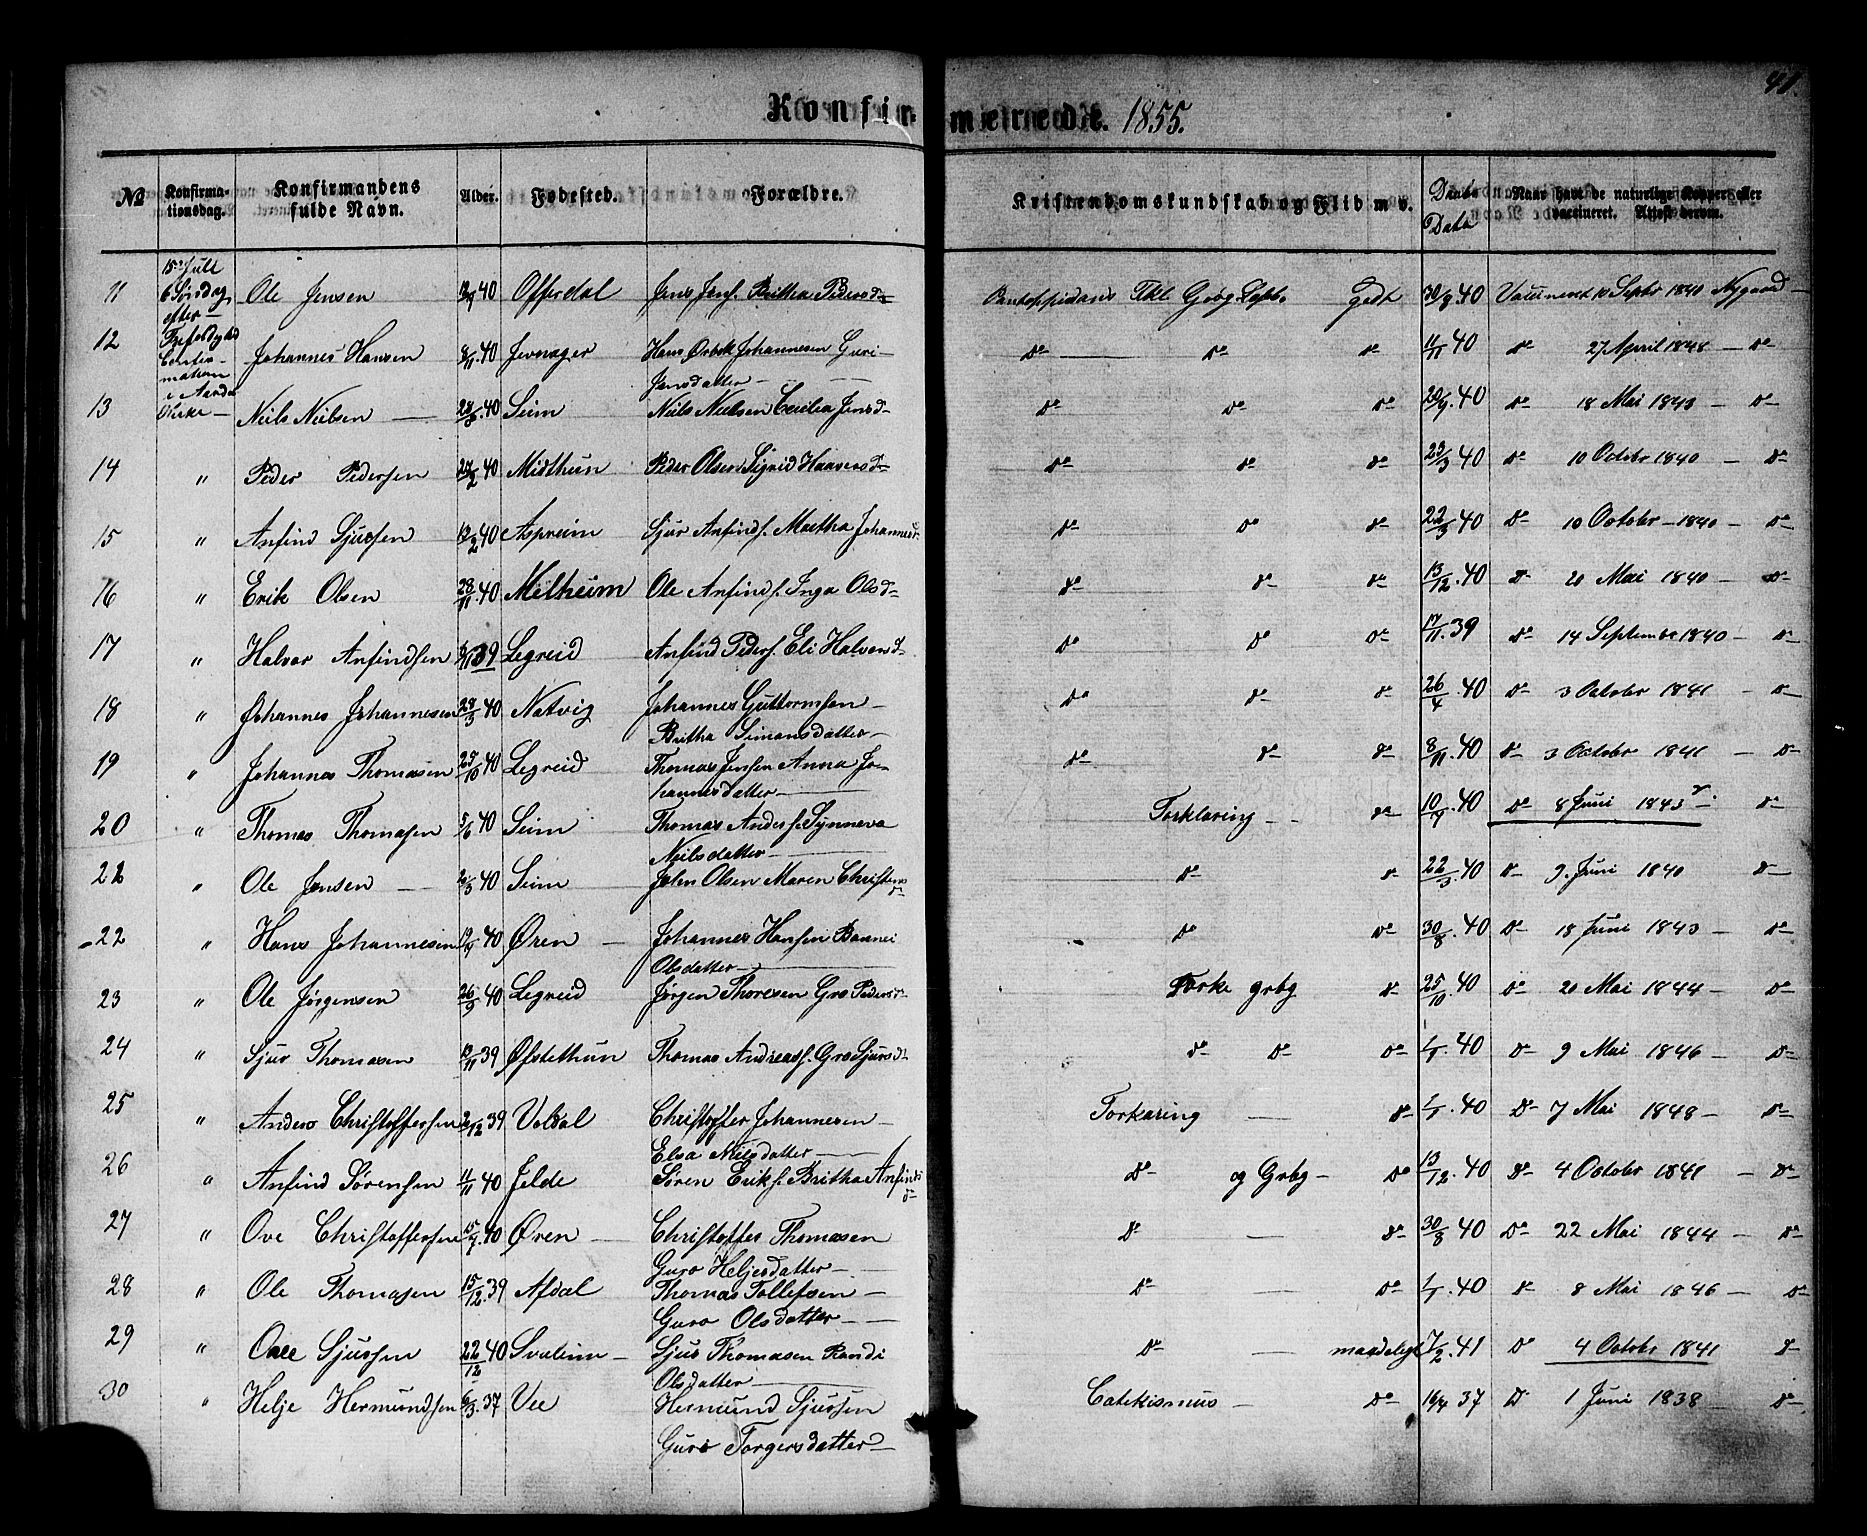 41.
Konfirmerede. 1855.
No Konfirmationsdag. Konfirmandens fulde Navn. Alder. Fødested. Forældre. Kristendomskundskab og Flid m v. Daabs Data Naar havt de naturlige Kopper eller vaccineret. Attest derom.
15de Juli
6 Søndag
efter
Trefoldighed
Confirmation
i Aardal
Kirke
11 Ole Jensen 40 Offerdal Jens Jens. Brithe Pedersd Pontoppidans Fkl Godt 30/8.40 Vaccineret 10 Septbr 1840 Nygaard
12 Johannes Hansen 8/11.40 Hans Johannesen Guri Do Do Do 11/11 40 Do 27 April 1848 Do
Jensdatter
13 Niels Nielsen 40 Seim Niels Nielsen Cecilia Jensd Do Do Do 20/9.40 Do 18 Mai 1843 Do
14 " Peder Pedersen 27/2 40 Midthun Peder Olsen Sigrid Haaversd Do Do Do 23/3 40 Do 10 Octobr 1840 Do
15 " Anfind Sjursen 40 Aspreim Sjur Anfinds. Martha Johannesd Do Do Do 22/3 40 Do 10 Octobr 1840 Do
16 " Erik Olsen 28/11 40 Mælheim Ole Anfinds. Inga Olsd Do Do Do 13/12.40 Do 20 Mai 1840 Do
17 " Halvor Anfindsen 39 Legreid Anfind Peders. Eli Halvorsd Do Do Do 17/11.39 Do 14 September 1840 Do
18 " Johannes Johannesen 28/3 40 Natvig Johannes Guttormsen Do Do Do 26/4.40 Do 3 Octobr 1841 Do
Britha Simonsdatter
19 " Johannes Thomasen 25/10 40 Legreid Thomas Jensen Anna Jo- Do Do Do 8/11.40 Do 3 Octobr 1841 Do
hannesdatter
20 " Thomas Thomasen 5/6 40 Seim Thomas Anders. Synneva Forklaring Do 10/9.40 Do 8 Juni 1843 Do
Neilsdatter
22 " Ole Jensen 40 Seim John Olsen Maren Christensd Do Do 22/3.40 Do 9 Juni 1840 Do
22 " Hans Johannesen 40 Øren Johannes Hansen Do Do 30/8.40 Do 18 Juni 1843 Do
Olsdatter
23 " Ole Jørgensen 26/9 40 Legreid Jørgen Thoresen Gro Pedersd Forke grbg Do 25/10.40 Do 20 Mai 1844 Do
24 " Sjur Thomasen 39 Øfstethun Thomas Andreas. Gro Sjursd Do Do Do 1/1.40 Do 9 Mai 1846 Do
25 " Anders Christoffersen 39 Voldal Christoffer Johannesen Forkaring Do 1/1.40 Do 7 Mai 1848 Do
Elsa Nilsdatter
26 " Anfind Sørensen 11/11 40 Jelde Søren Eriks. Britha Anfinds Do og Grbg Do 13/12.40 Do 4 Octobr 1841 Do
d
27 " Ove Christoffersen 40 Øren Christoffer Thomasen Do Do 30/8 40 Do 22 Mai 1844 Do
Guro Heljesdatter
28 " Ole Thomasen 15/12.39 Afdal Thomas Tollefsen Do Do 1/1.40 Do 8 Mai 1846 Do
Guro Olsdatter
29 " Sjursen 22/12 40 Svalem Sjur Thomasen Randi Do maadeligt 7/2.41 Do 4 Octobr 1841 Do
Olsdatter
30 " Helje Hermundsen 6/3.37 Vee Hermund Sjursen Catekismus Do 16/4 37 Do 1 Juni 1838 Do
Guro Torgersdatter